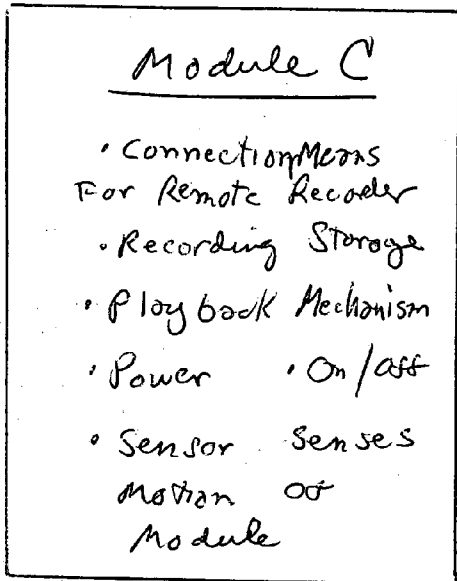 Module C
• Connection Means
For Remote Recorder
• Recording Storage
• Playback Mechanism
• Power • On/Off
• Sensor Senses
Motion of
Module